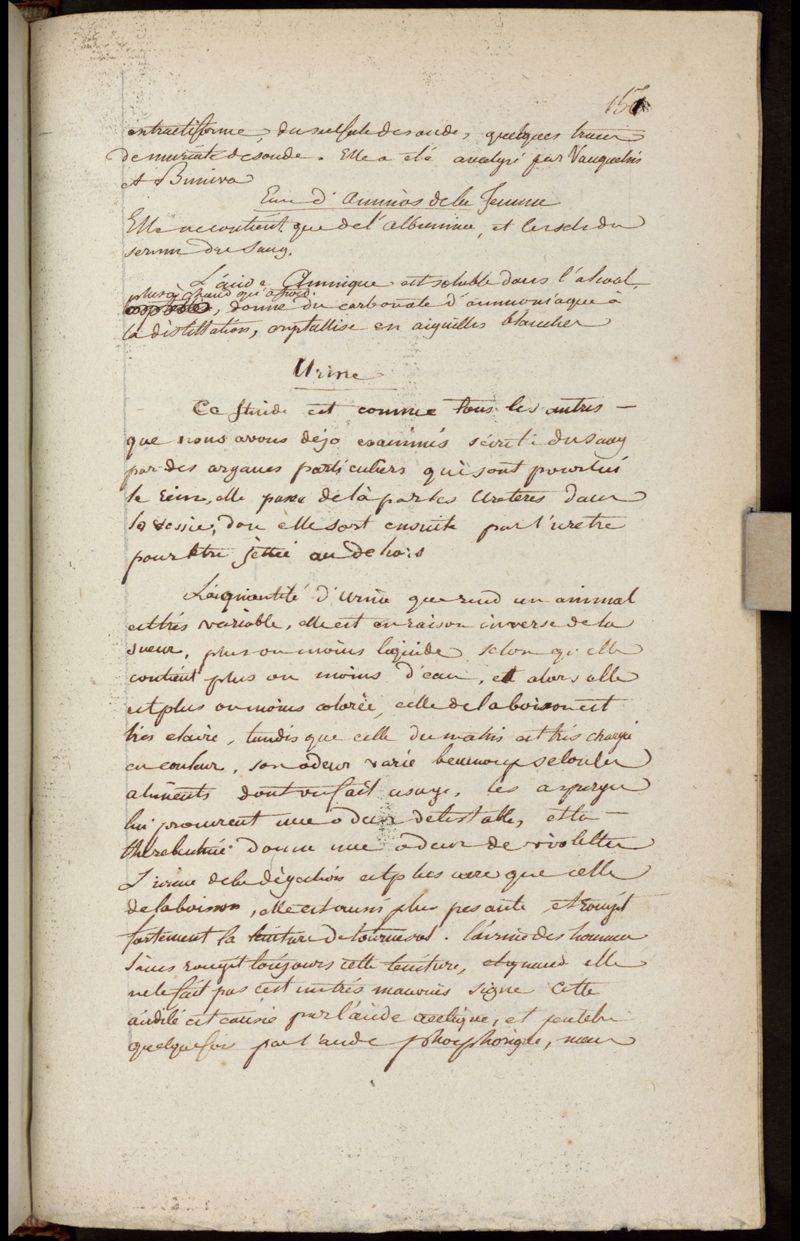 157
extractiforme, du sulfate de soude, quelques traces
de muriate de soude. Elle a été analysé par Vauquelin
et Buniva
Eau d'Amnios de la femme
Elle ne contient que de l'albumine, et les sels du
serum du sang.
L'acide Amnique est soluble dans l'alcool
plus à chaud qu'à froid
, donne du carbonate d'ammoniaque à
la distillation, cristallise en aiguilles blanches
Urine
Ce fluide est comme tous les autres
que nous avons déjà examinés sécrété du sang
par des organes particuliers qui sont pour lui
le rein, elle passe de là par les Uretères dans
la vessie, d'ou elle sort ensuite par l'uretre
pour être jettée au dehors
La quantité d'Urine que rend un animal
est très variable, elle est en raison inverse de la
sueur, plus ou moins liquide selon qu'elle
contient plus ou moins d'eau, et alors elle
est plus ou moins colorée, celle de la boisson est
très claire, tandis que celle du matin est très chargé
en couleur, son odeur varie beaucoup selon les
aliments dont on fait usage, les asperges
lui procurent une odeur détestable, et la
thérebentine donne une odeur de violette
L'urine de la digestion est plus acre que celle
de la boisson, elle est aussi plus pesante et rougit
fortement la teinture de tournesol. l'urine des hommes
sains rougit toujours cette teinture, et quand elle
ne le fait pas c'est un très mauvais signe cette
acidité est causée par l'acide acetique, et peut être
quelquefois par l'acide phosphorique, mais